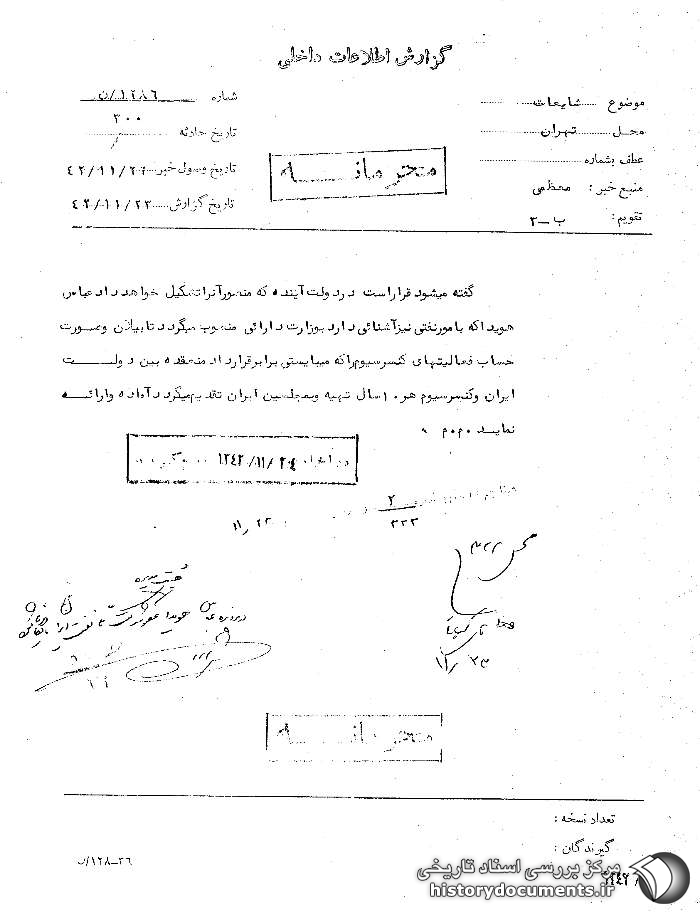 گزارش اطلاعات داخلی
موضوع شایعات
محل تهران
عطف بشماره
منبع خبر : معظمی
تقویم : ب-۳
شماره ۱۲۸۶/ن
۳۰۰
تاریخ حادثه
تاریخ وصول خبر ۴۲/۱۱/۲۰
تاریخ گزارش ۴۲/۱۱/۲۲
محرمانه
گفته میشود قرار است در دولت آینده که منصور آنرا تشکیل خواهد داد عباس
هویدا که بامور نفتی نیز آشنائی دارد بوزارت دارائی منصوب میگردد تا بیلان و صورت
حساب فعالیتهای کنسرسیوم را که میبایستی برابر قرارداد منعقده بین دولت
ایران و کنسرسیوم هر ۱۰ سال تهیه و بمجلسین ایران تقدیم میگردد آماده و ارائه
نماید م م م
۱۳۴۲/۱۱/۲۴
۲
۳۲۲
۱۱/۲۳
۳۲۲
۱۱/۲۳
محرمانه
تعداد نسخه :
گیرندگان :
۱۲۸-۳۶/ب
مرکز بررسی اسناد تاریخی
historydocuments.ir